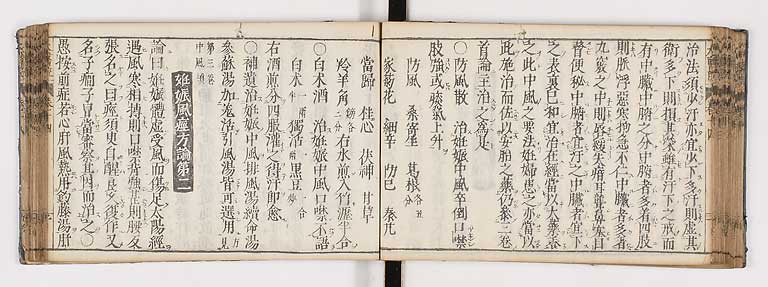 治法須少汗亦宜少下多汗則虚其
衛多下則損其榮雖有汗下之戒而
有中臓中腑之分中腑者多着四肢
則脉浮惡寒拘急不仁中臓者多着
九竅之中則唇緩失音耳聾鼻塞目
瞀便秘中腑者宜汗之中臓者宜下
之表裏已和宜治在經當以大藥養
之此中風之要法妊婦患之亦當以
此施治而佐以安胎之藥仍參三卷
首論主治之爲是
〇防風散 治妊娠中風卒倒口噤
肢強或痰氣上升
防風 桑寄生 葛根
家菊花 細辛 防已 秦艽
當歸 桂心 茯神 甘草
羚羊角 右水煎入竹瀝半合
〇白朮酒 治妊娠中風口噤不語
白朮 獨活 黒豆
右酒煎分四服灌之得汗即愈
〇補遺治妊娠中風排風湯續命湯
參蘇湯加羗活引風湯皆可選用
第三卷
中風
妊娠風痙方論第二
論曰妊娠體虚受風而傷足太陽經
遇風寒相搏則口噤背強甚則腰反
張名之曰痙須臾自醒良久復作又
名子癇子冒當審察其因而治之〇
愚按前症若心肝風熱用釣藤湯肝